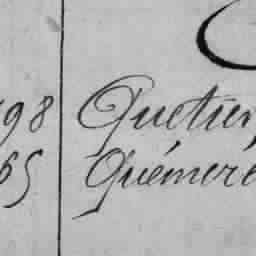 98 Quetier
65 Quémeré